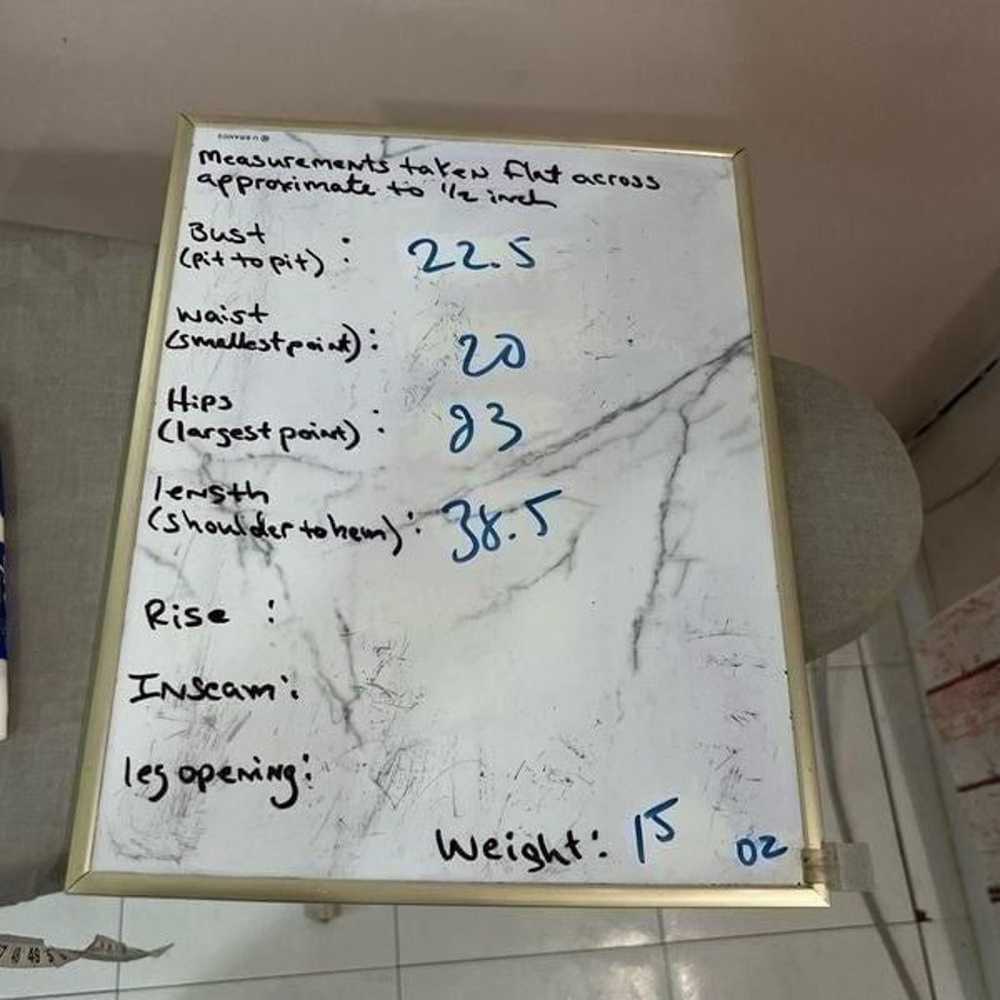 Measurements taken flat across
approximate to 1/2 inch
Bust
(pit to pit) : 22.5
waist
(smallest point) : 20
Hips
(largest point) : 23
length
(shoulder to hem) : 38.5
Rise :
Inseam :
leg opening :
Weight : 15 oz
48 5